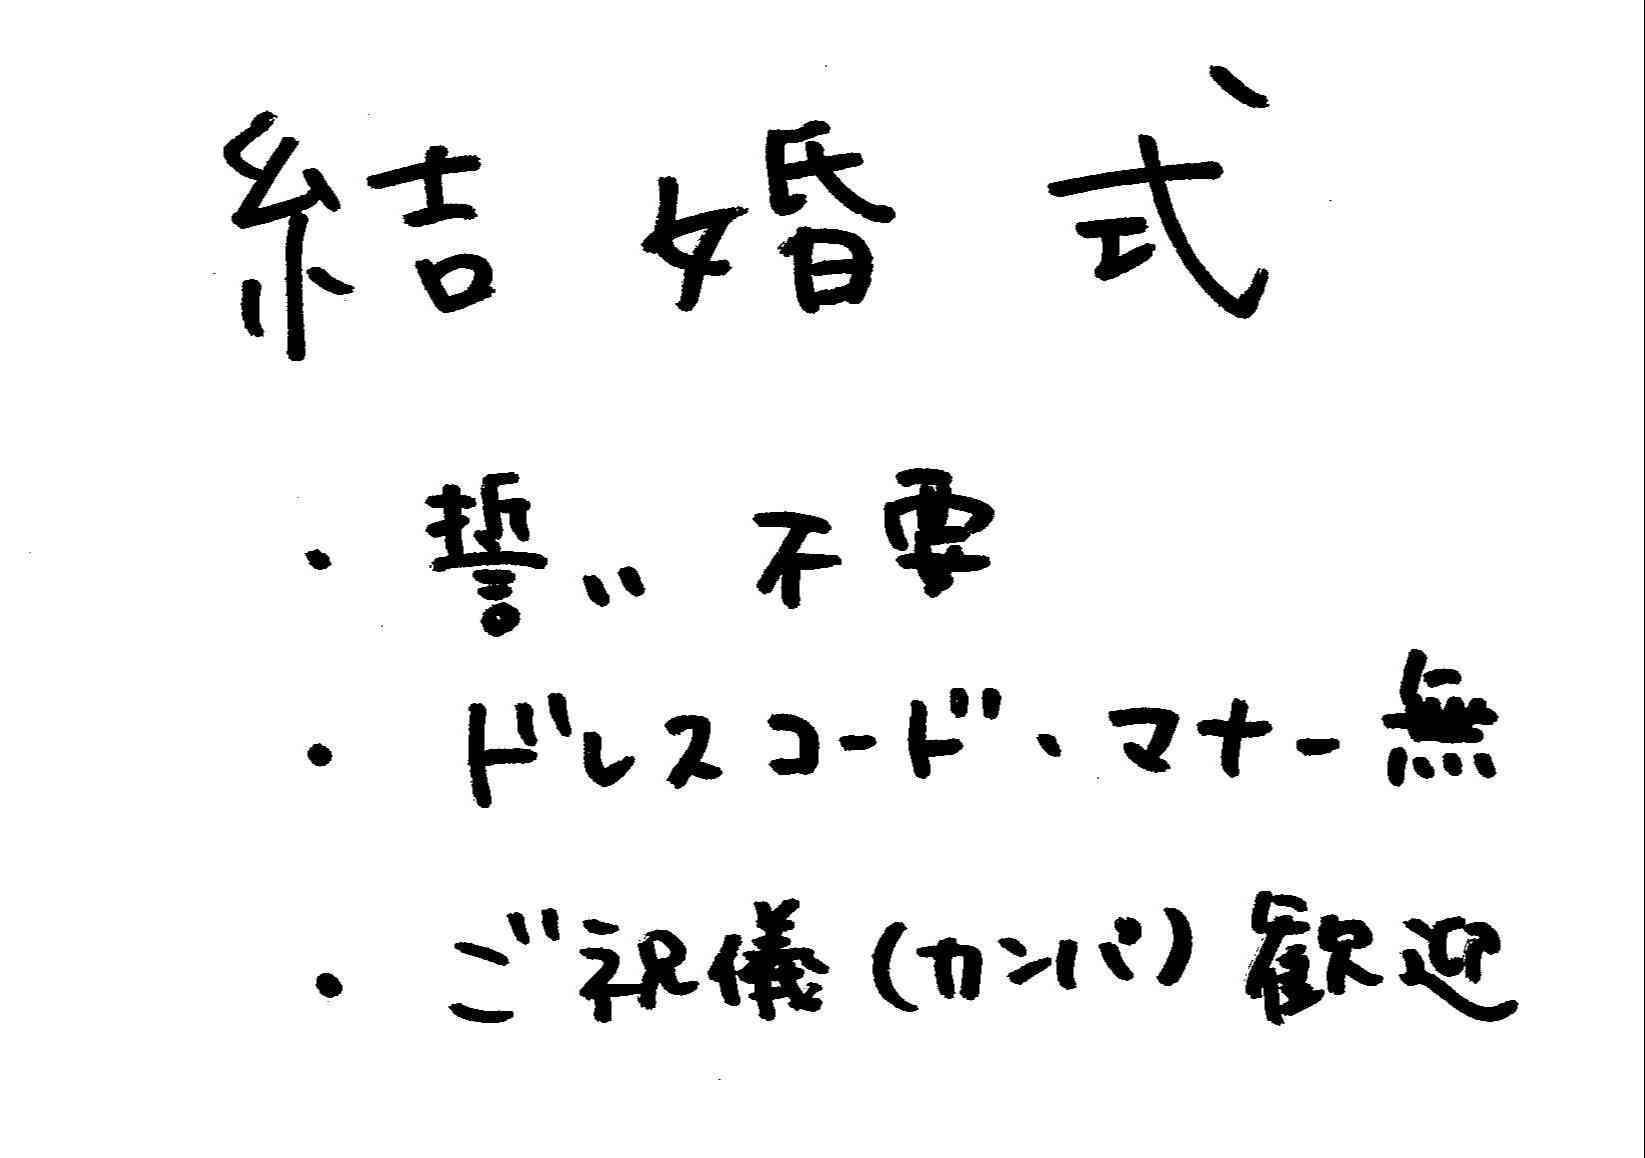 結婚式
・誓い不要
・ドレスコード・マナー無
・ご祝儀(カンパ)歓迎